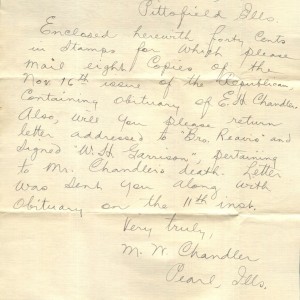 Pittsfield Ills.
Enclosed herewith forty Cents
in Stamps for which please
mail eight Copies of the
Nov 16th issue of the Republican,
Containing Obituary of E. H. Chandler.
Also, will you please return
letter addressed to "Bro. Reavis" and
Signed "W. H. Garrison", pertaining
to Mr. Chandlers death. Letter
Was Sent You Along With
Obituary on the 11th inst.
Very truly,
M. W. Chandler
Pearl, Ills.